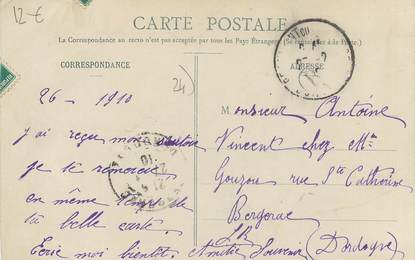 12-€
CARTE POSTALE
La Correspondance au recto n'est pas acceptée par tous les Pays Étrangers (Se renseigner à la Poste).
CORRESPONDANCE
ADRESSE
24)
26 - 1910
J'ai reçu mon
je te remercie
en même temps de
ta belle carte.
Ecrie moi bientôt. Amitié Souvenir
Monsieur Antoine
Vincent chez Mr
Gouzou rue Ste Cathérine
Bergerac
(Dordogne)